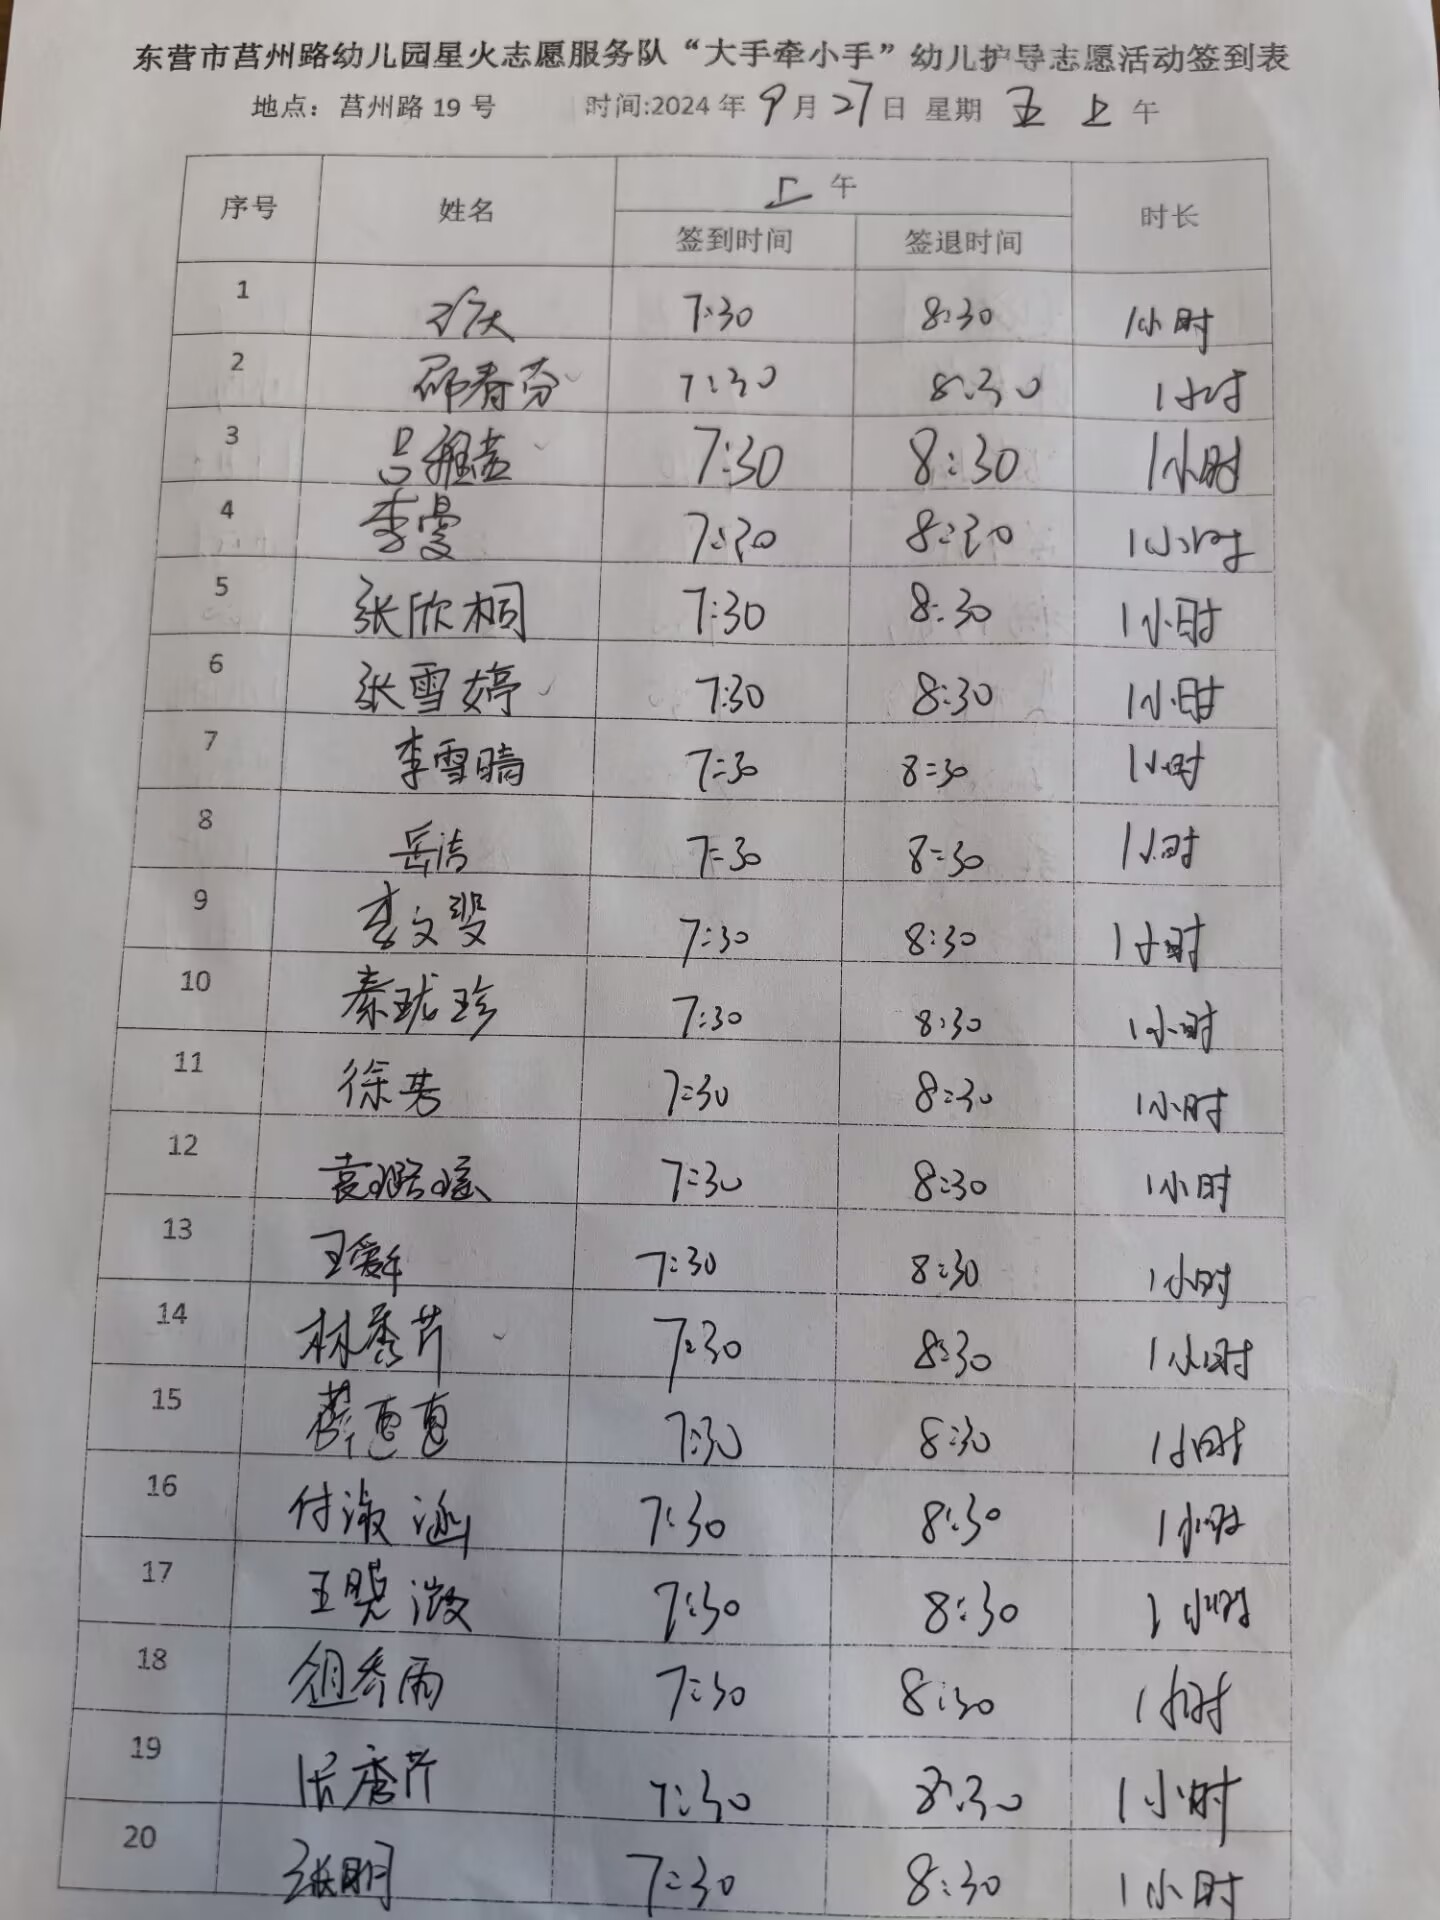 东营市莒州路幼儿园星火志愿服务队“大手牵小手”幼儿护导志愿活动签到表
地点：莒州路 19 号 时间:2024 年 9 月 27 日 星期 五 上 午
序号 姓名 上 午 时长
签到时间 签退时间
1 7:30 8:30 1小时
2 邵春芬 7:30 8:30 1小时
3 吕雅孟 7:30 8:30 1小时
4 李曼 7:30 8:30 1小时
5 张欣桐 7:30 8:30 1小时
6 张雪婷 7:30 8:30 1小时
7 李雪晴 7:30 8:30 1小时
8 岳洁 7:30 8:30 1小时
9 李文翠 7:30 8:30 1小时
10 秦珑珍 7:30 8:30 1小时
11 徐芳 7:30 8:30 1小时
12 袁璐瑶 7:30 8:30 1小时
13 王爱华 7:30 8:30 1小时
14 林秀芹 7:30 8:30 1小时
15 薛惠惠 7:30 8:30 1小时
16 付淑涵 7:30 8:30 1小时
17 王晓溦 7:30 8:30 1小时
18 7:30 8:30 1小时
19 7:30 8:30 1小时
20 张明 7:30 8:30 1小时